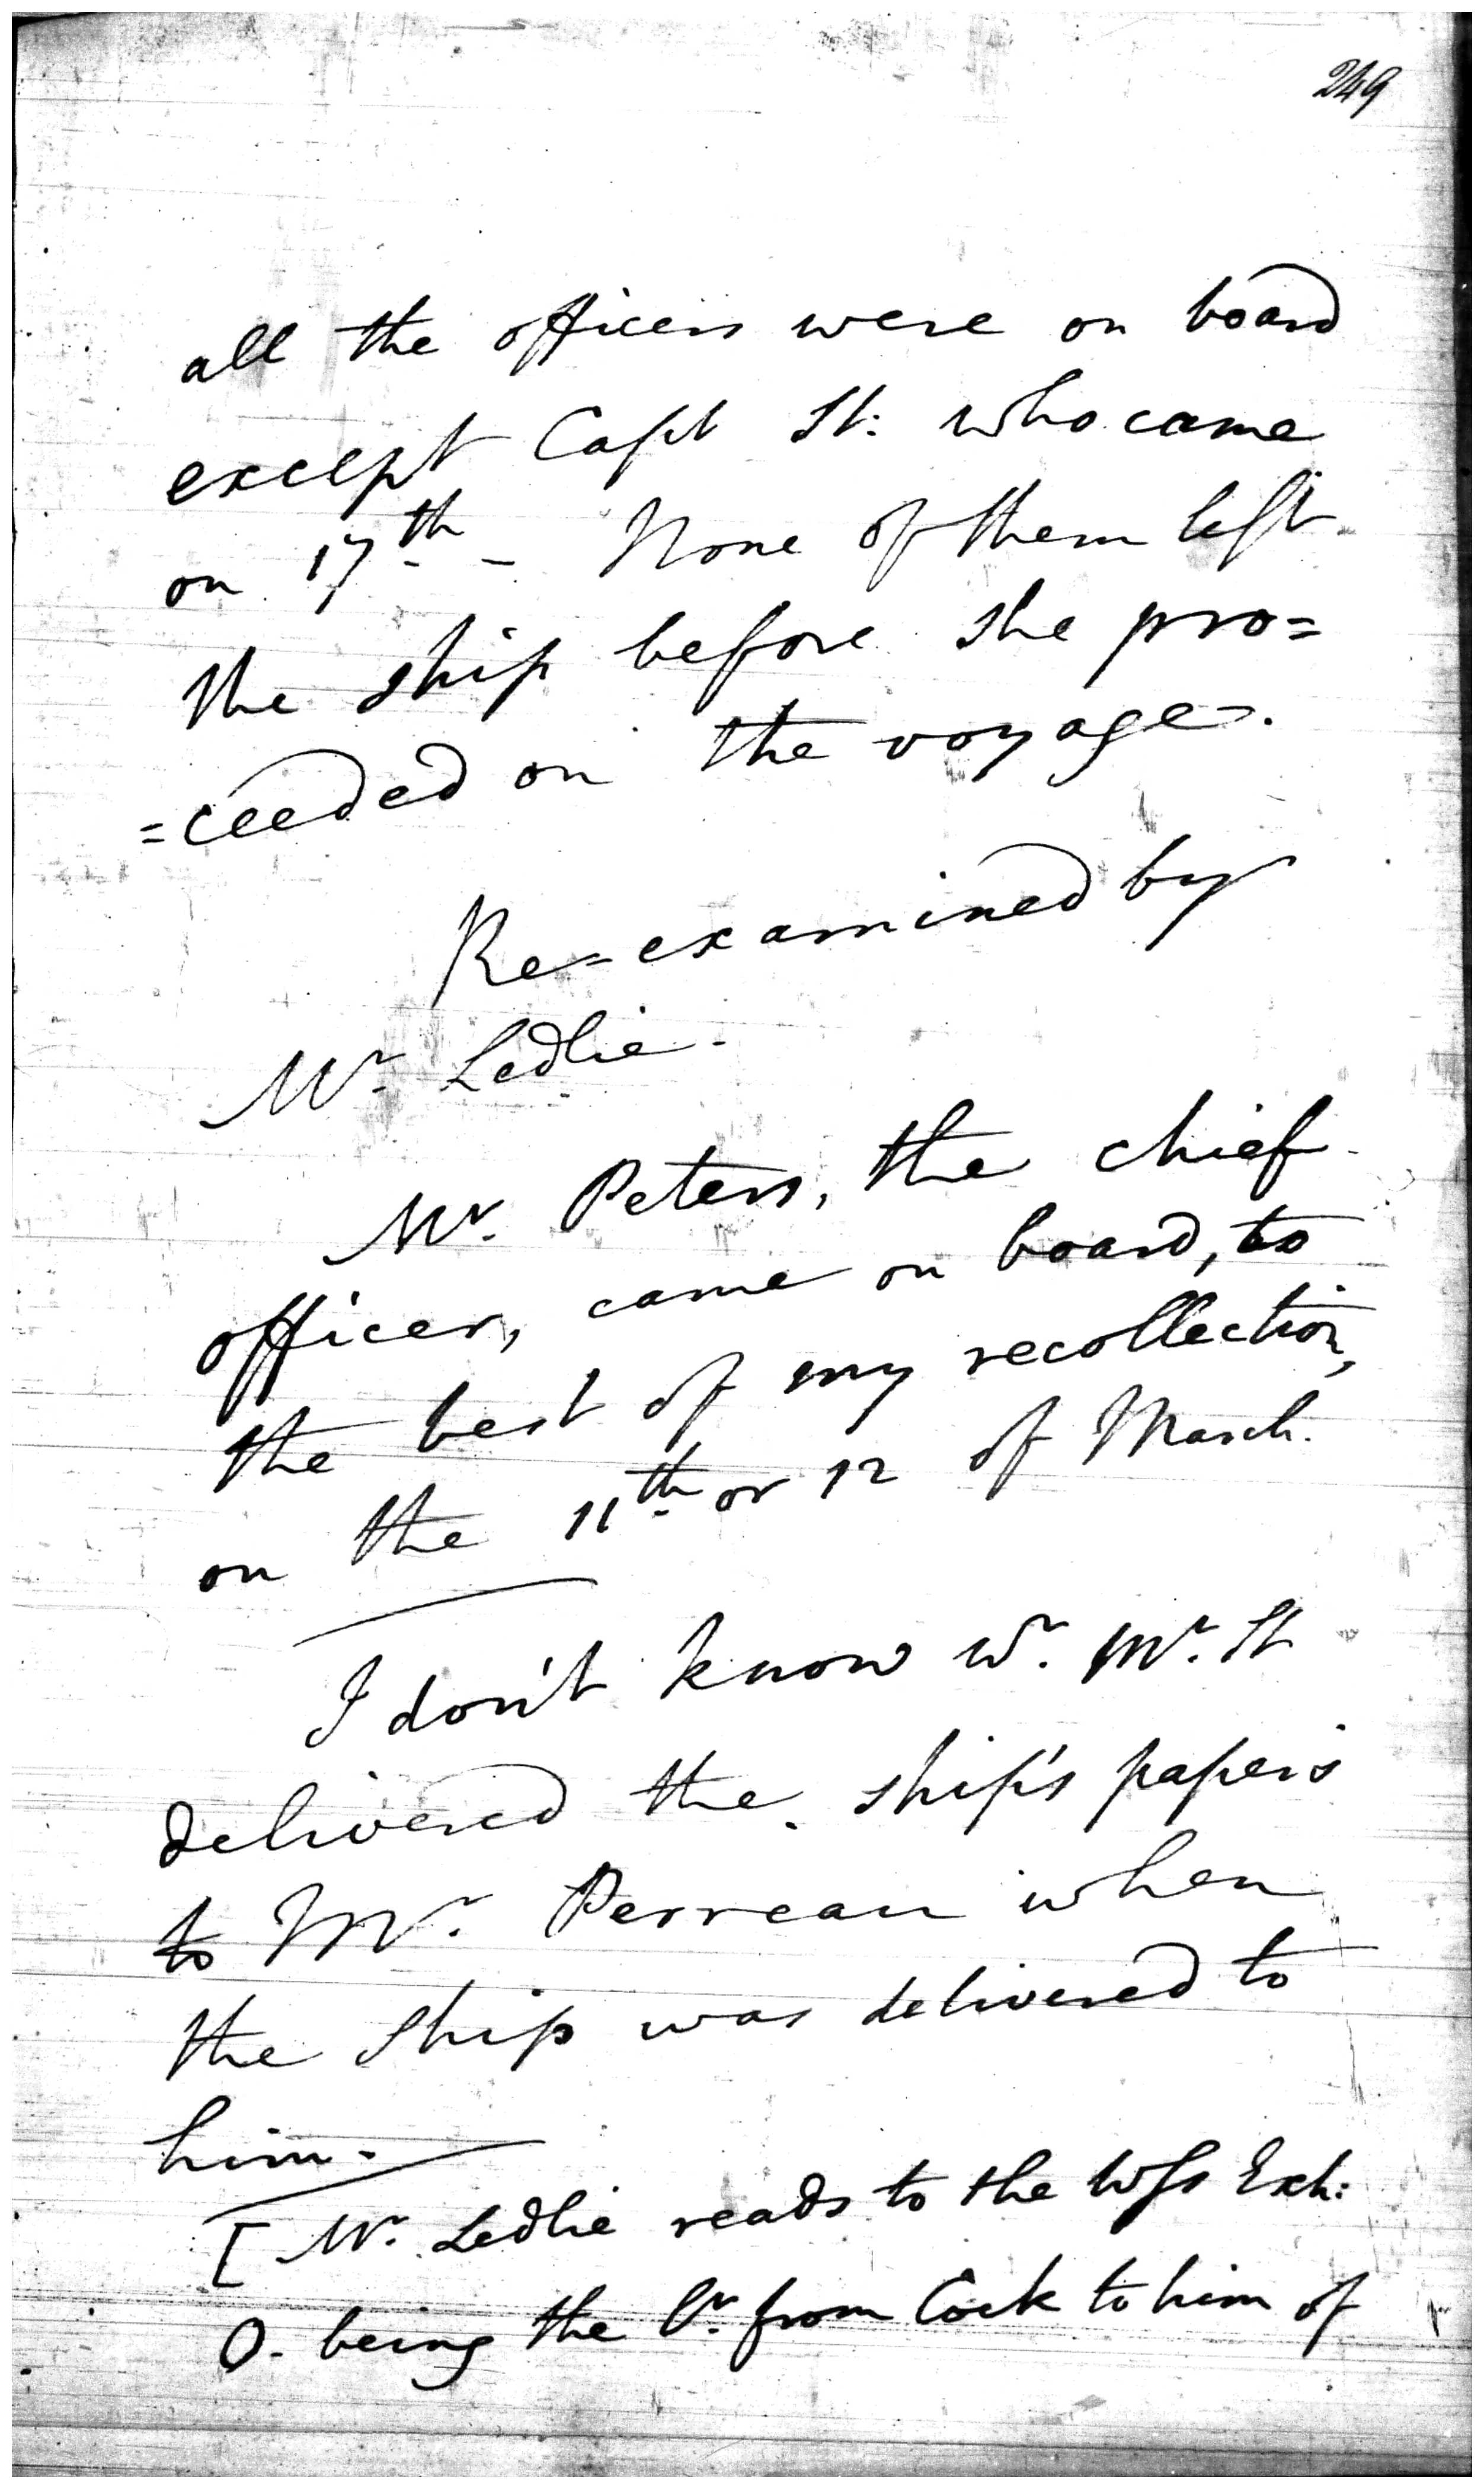 249
all the officers were on board
except Capt St: who came
on 17th - None of them left
the ship before she pro=
=ceeded on the voyage.
Re=examined by
Mr. Ledlie.
Mr. Peters, the chief
officer, came on board, to
the best of my recollection,
on the 11th or 12 of March.
I don't know wr. Mr. St
delivered the ship's papers
to Mr. Perreau when
the ship was delivered to
him.
[ Mr. Ledlie reads to the Wss Exh:
O. being the lr. from Cock to him of